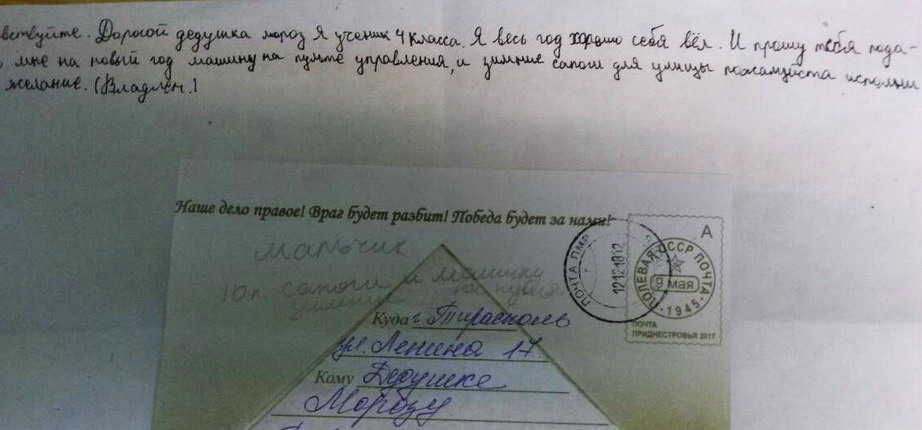 вствуйте. Дорогой дедушка мороз Я ученик 4 класса. Я весь год хорошо себя вёл. И прошу тебя пода-
мне на новый год машину на пумте управления, и зимние сапоги для улицы пожалуйста исполни
желание. (Владлен.)
Наше дело правое! Враг будет разбит! Победа будет за нами!
мальчик
10л. сапоги и машинку
зимние на пульте
Куда г. Тирасполь
ул. Ленина 17
Кому Дедушке
Морозу
ПОЧТА ПМР
121218 12
А
ПОЛЕВАЯ СССР ПОЧТА
9 мая
1945
ПОЧТА
ПРИДНЕСТРОВЬЯ 2017